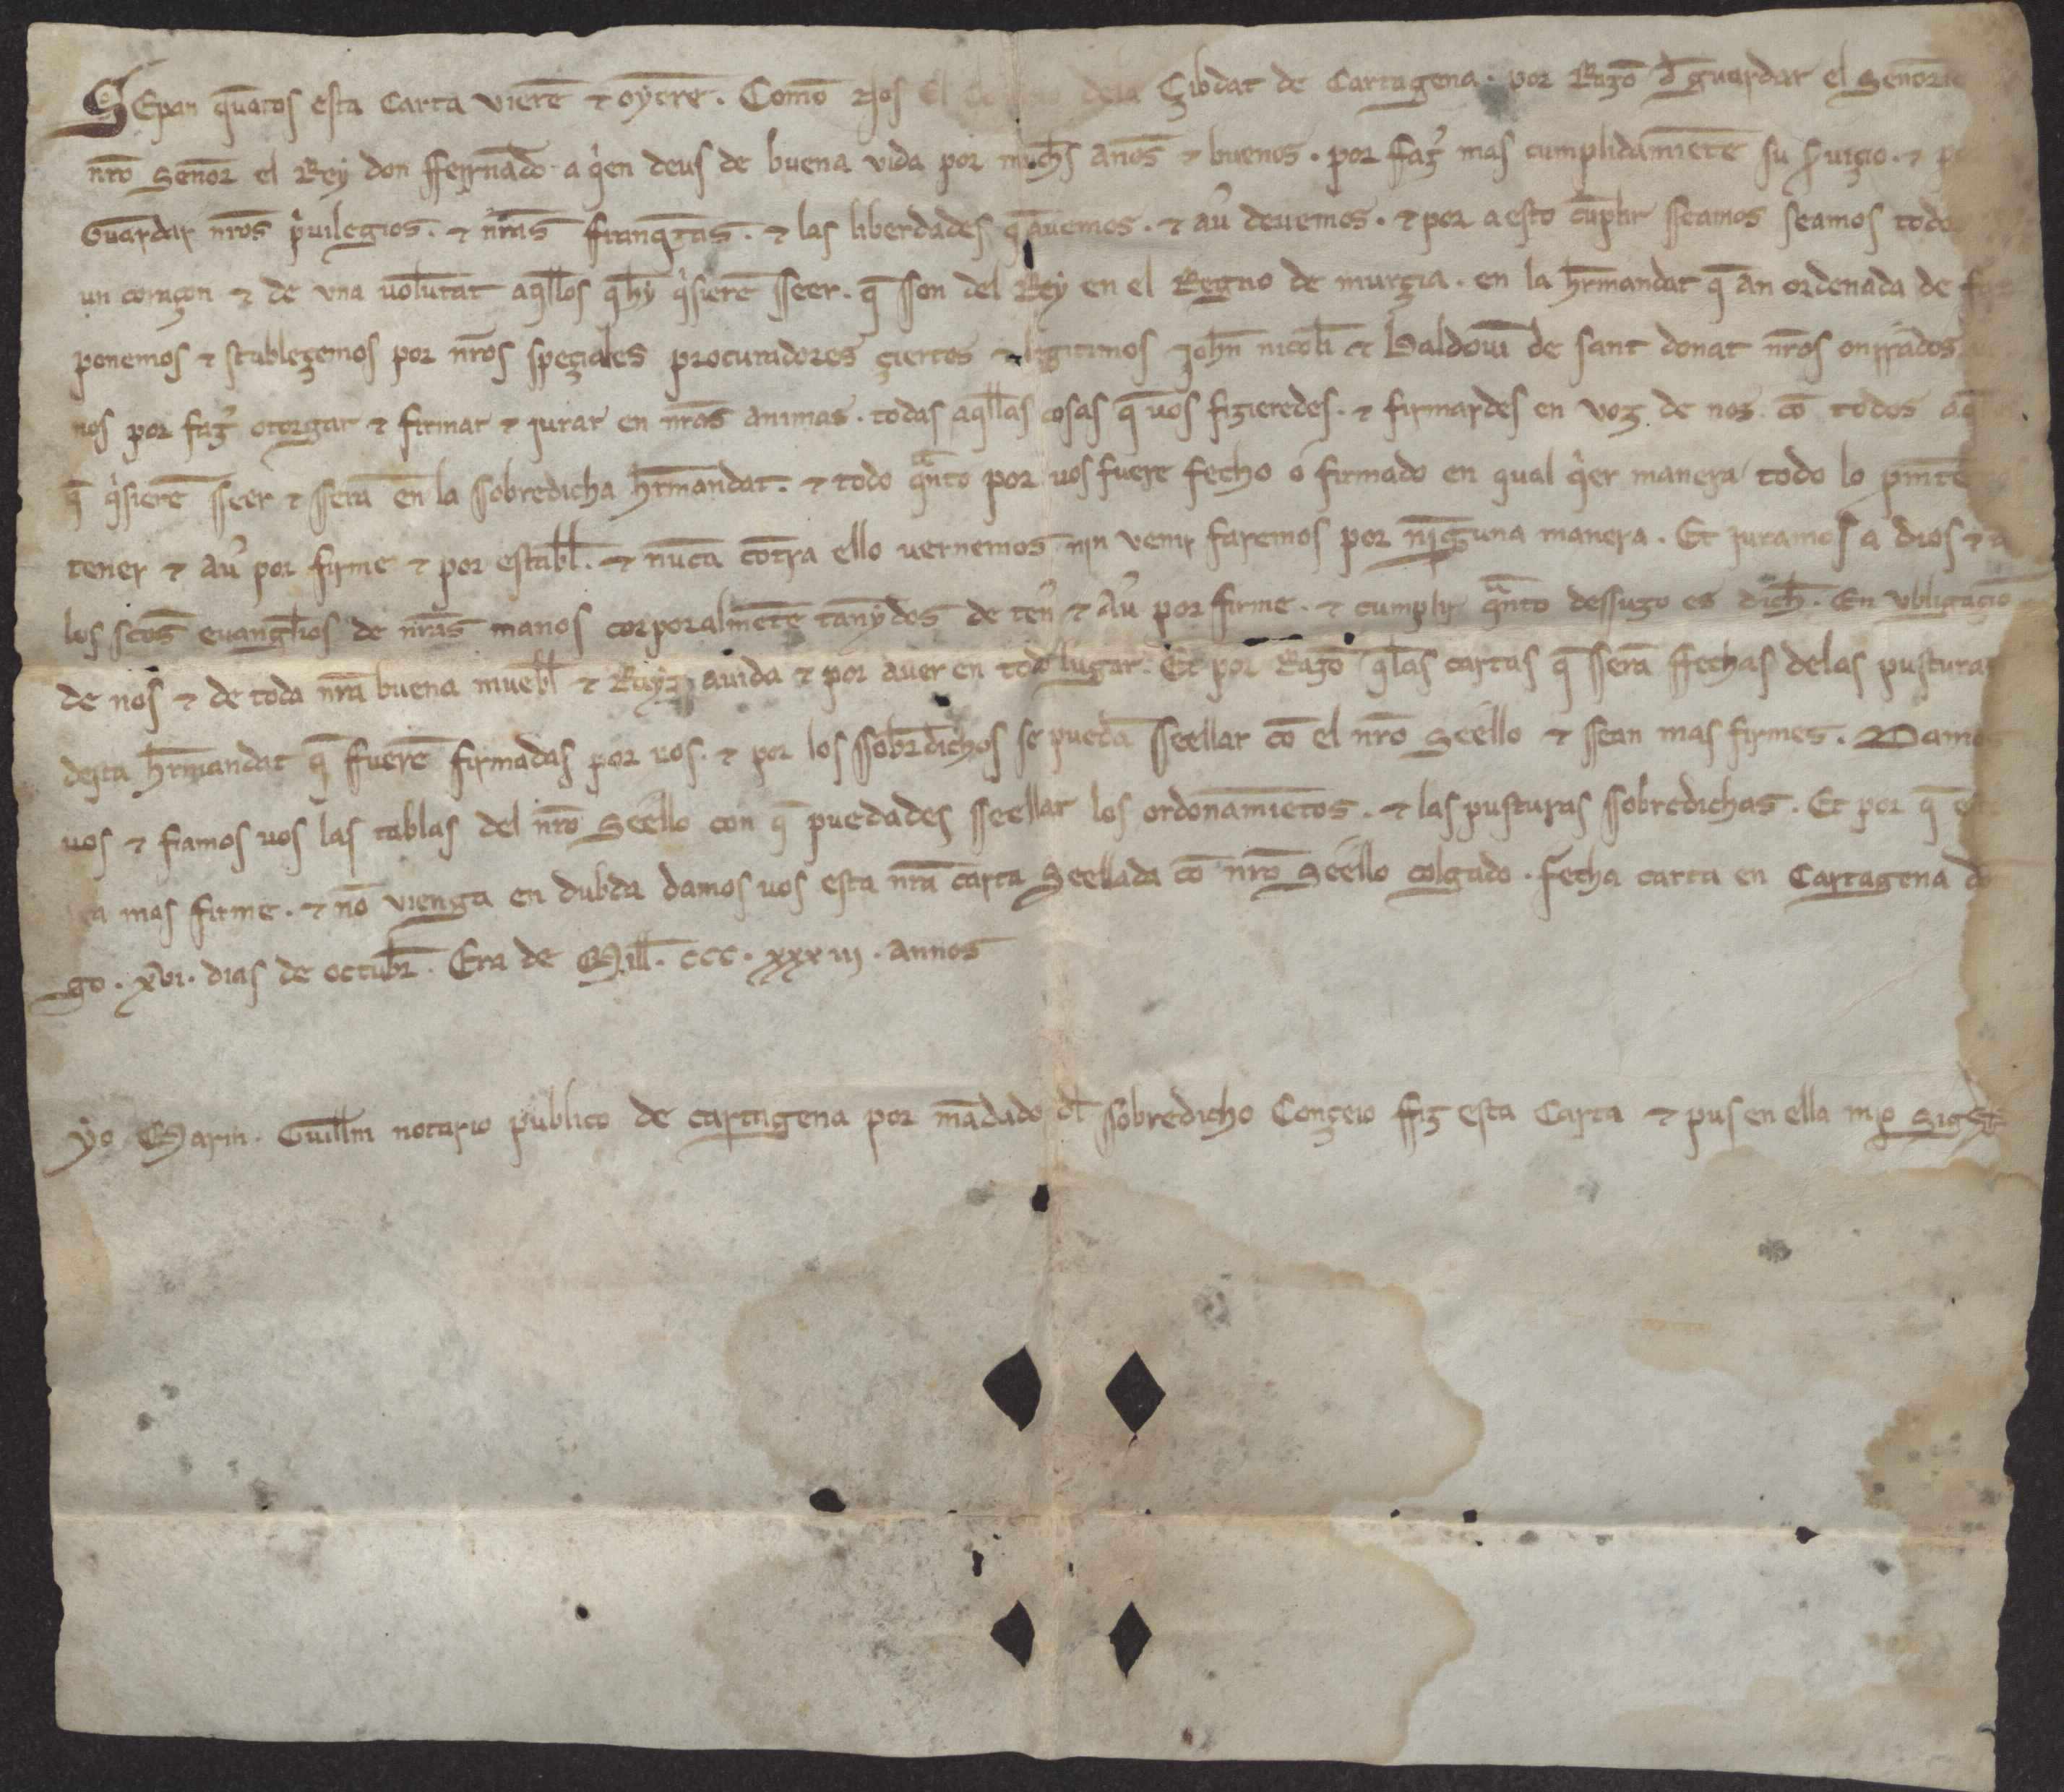 SEpan quatos esta carta vierē ⁊ oyerē. Comō nos El dela Çibdat de Cartagena. por Razō đ guardar el Senōrio
nr̄o Senōr el Rey don fferrnādo a qien deus de buena vida por much̄s anōs ⁊ buenos. por faz̓ mas cumplidamiētē su s̓uiçio. ⁊
Guardar nr̄os p̓uilegios. ⁊ nr̄as franq̄zas. ⁊ las liberdades q̄ auemos. ⁊ au̓ devemos. ⁊ por a esto cūplir sseamos seamos todo
un coraçon ⁊ de vna uolūtat aq̄llos q̄ hy q̓sierē sseer. q̄ sson del Rey en el Regno de murçia. en la h̄rmandat q̄ an ordenada de
ponemos ⁊ stableçemos por nr̄os speçiales procuradores çiertos ⁊ legitimos Joh̄n nicoli ⁊ Baldoui de sant donat nr̄os onrrados
nos por faz̓ otorgar ⁊ firmar ⁊ jurar en nr̄as animas. todas aq̄llas cosas q̄ uos fizieredes. ⁊ firmardes en voz de nos. cō todos
q̄ q̓sierē sseer ⁊ serā en la ssobredicha h̄rmandat. ⁊ todo q̄nto por uos fuere fecho o firmado en qual q̓er manera todo lo
tener ⁊ au̓ por firme ⁊ por estabł. ⁊ nūca cōtra ello uernemos nin venir faremos por ninguna manera. Et juramos a dios ⁊ a
los s̄cos euangłios de nr̄as manos corporalmētē tanydos de ten̓ ⁊ au̓ por firme. ⁊ cumplir q̄nto dessuzo es dich̄. En vbligaçiō
de nos ⁊ de toda nr̄a buena muebł ⁊ Rayz auida ⁊ por auer en todo lugar. Et por Razō q̄ las cartas q̄ sserā ffechas delas pusturas
desta h̄rmandat q̄ ffuerē firmadas por uos. ⁊ por los ssobr̄dichos se puedā sseellar cō el nr̄o Seello ⁊ ssean mas firmes. Damos
uos ⁊ fiamos uos las tablas del nr̄o Seello con q̄ puedades sseellar los ordonamiētos. ⁊ las pusturas ssobredichas. Et por q̄
mas firme. ⁊ nō vienga en dubda damos uos esta nr̄a carta Seellada cō nr̄o Seello colgado. fecha carta en Cartagena
go. xvi. dias de octubr̄. Era de Mill. CCC. xxxiij. annos
Yo Marin. Guillm notario publico de cartagena por mādado dł ssobredicho Conçeio ffiz esta Carta ⁊ pus en ella mjo